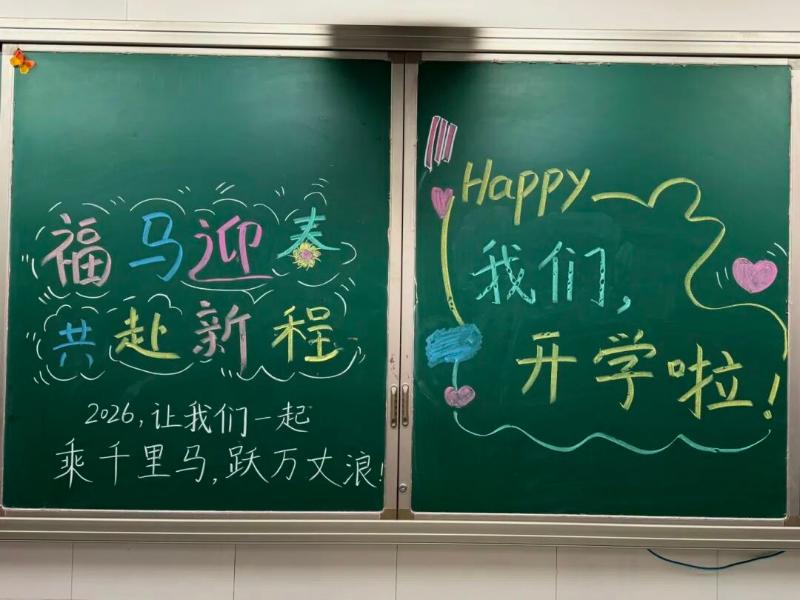 福马迎春
共赴新程
2026,让我们一起
乘千里马,跃万丈浪!
Happy
我们,
开学啦!